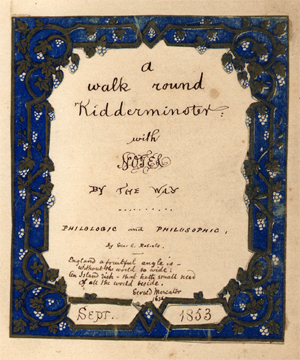 a
walk round
Kidderminster:
with
NOTES
BY THE WAY
PHILOLOGIC and PHILOSOPHIC,
By Geo. E.
England a fruitful angle is –
Without the world so wide:
An Island rich – that hath small need
Of all the world beside.
Gerald Mercator
Sept. 1853